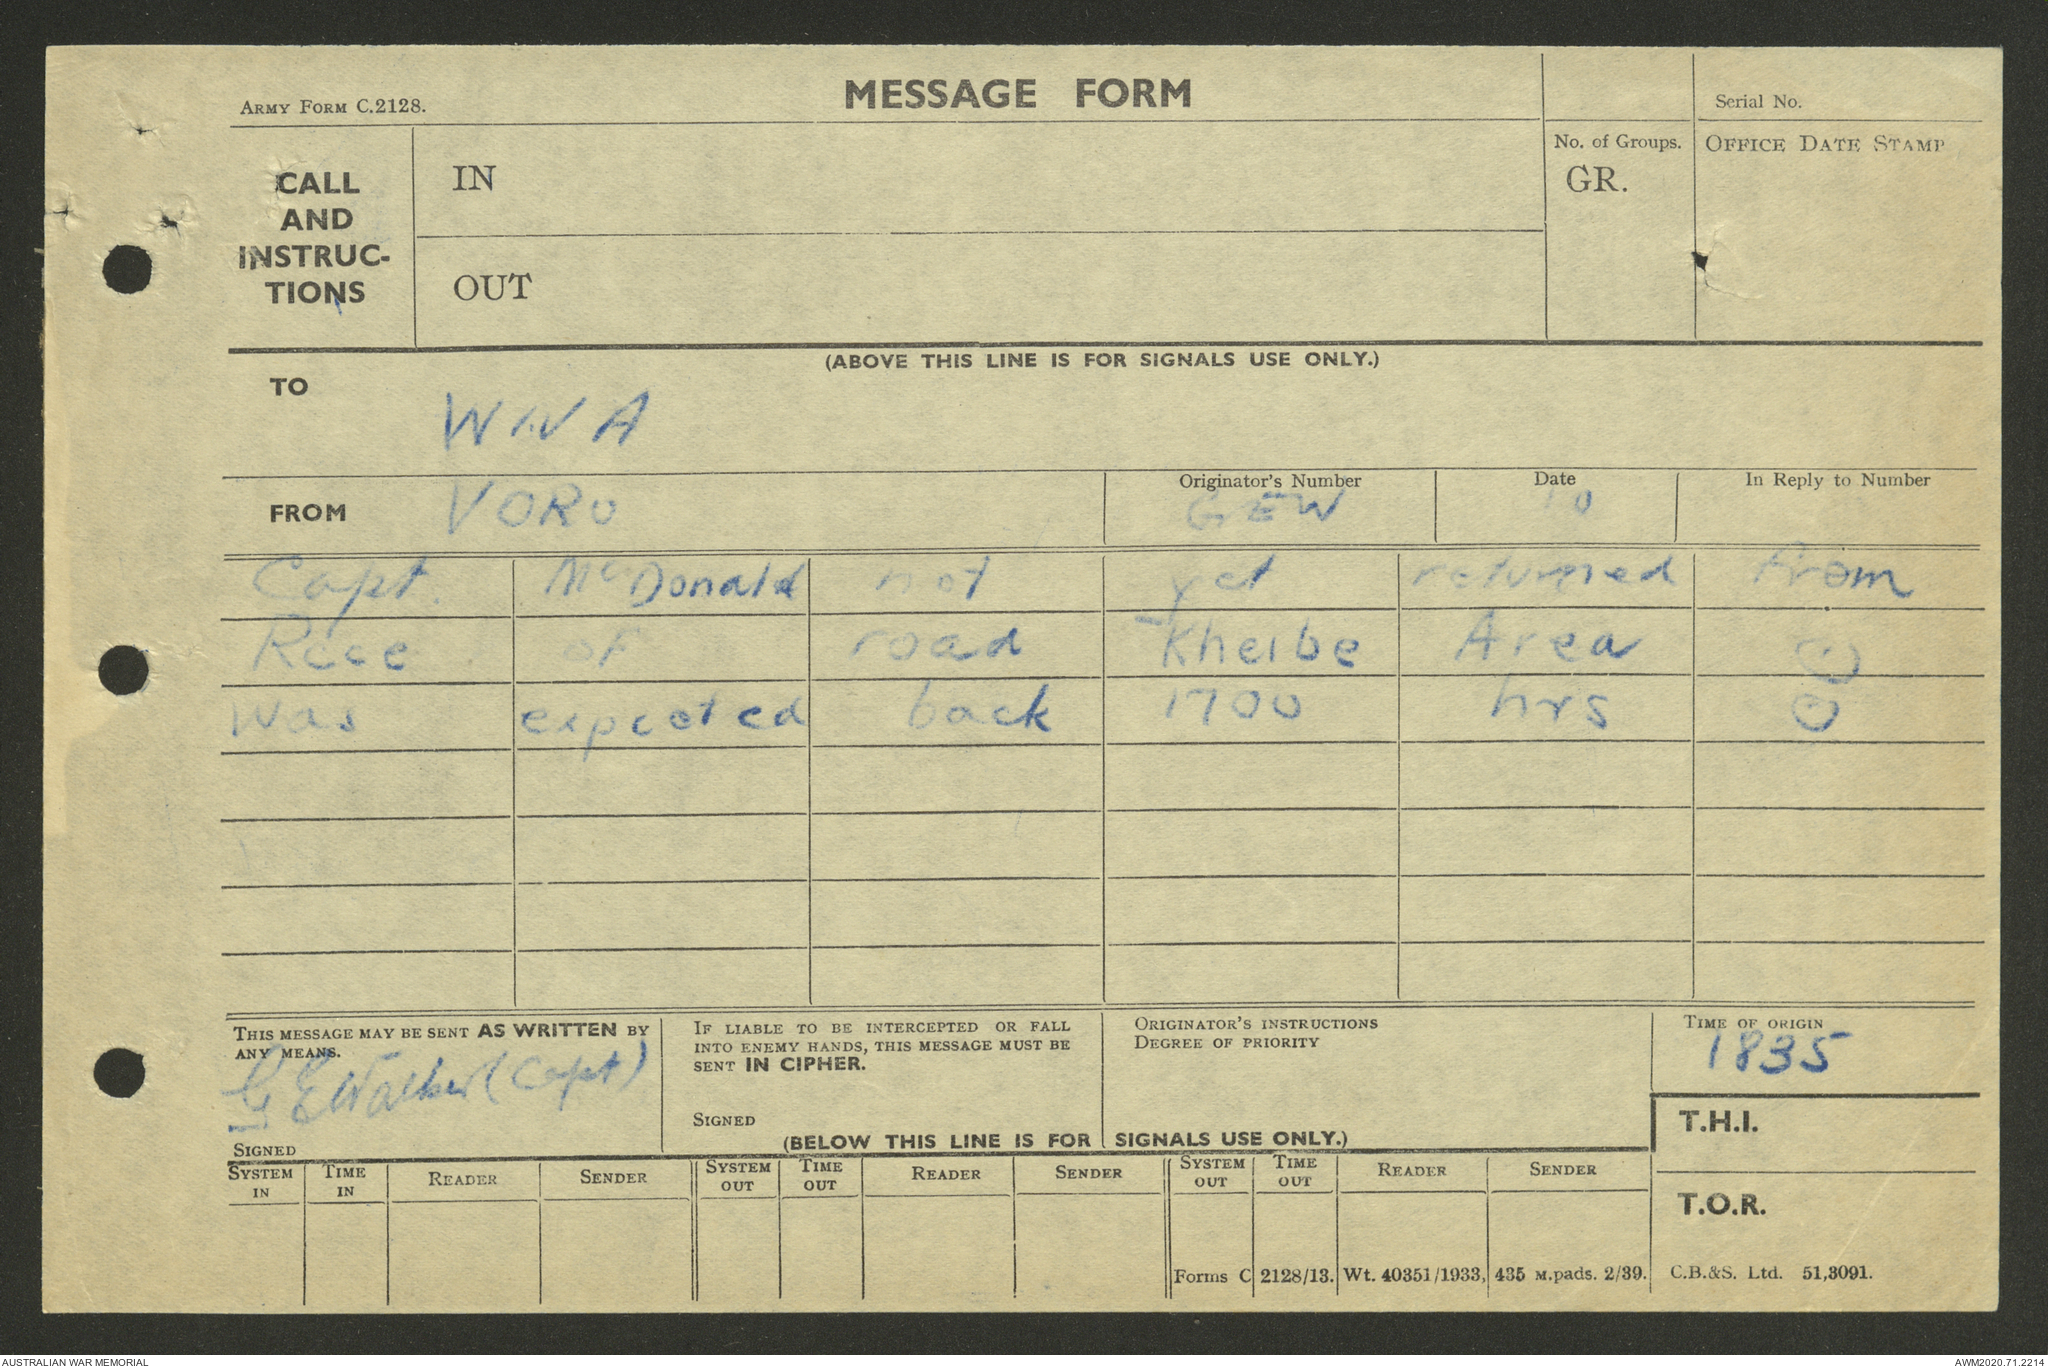 ARMY FORM C.2128.
MESSAGE FORM
Serial No.
CALL AND INSTRUC-TIONS
IN
OUT
No. of Groups.
GR.
OFFICE DATE STAMP
(ABOVE THIS LINE IS FOR SIGNALS USE ONLY.)
TO
WINA
FROM
VORO
Originator's Number
GEW
Date
10
In Reply to Number
Capt. McDonald not yet returned from
Recce of road Kheibe Area ⊙
was expected back 1700 hrs ⊙
THIS MESSAGE MAY BE SENT AS WRITTEN BY
ANY MEANS.
G E Walker (Capt)
SIGNED
IF LIABLE TO BE INTERCEPTED OR FALL
INTO ENEMY HANDS, THIS MESSAGE MUST BE
SENT IN CIPHER.
SIGNED
ORIGINATOR'S INSTRUCTIONS
DEGREE OF PRIORITY
TIME OF ORIGIN
1835
T.H.I.
T.O.R.
(BELOW THIS LINE IS FOR SIGNALS USE ONLY.)
SYSTEM IN
TIME IN
READER
SENDER
SYSTEM OUT
TIME OUT
READER
SENDER
SYSTEM OUT
TIME OUT
READER
SENDER
Forms C 2128/13. Wt. 40351/1933, 435 M.pads. 2/39. C.B.&S. Ltd. 51,3091.
AUSTRALIAN WAR MEMORIAL
AWM2020.71.2214